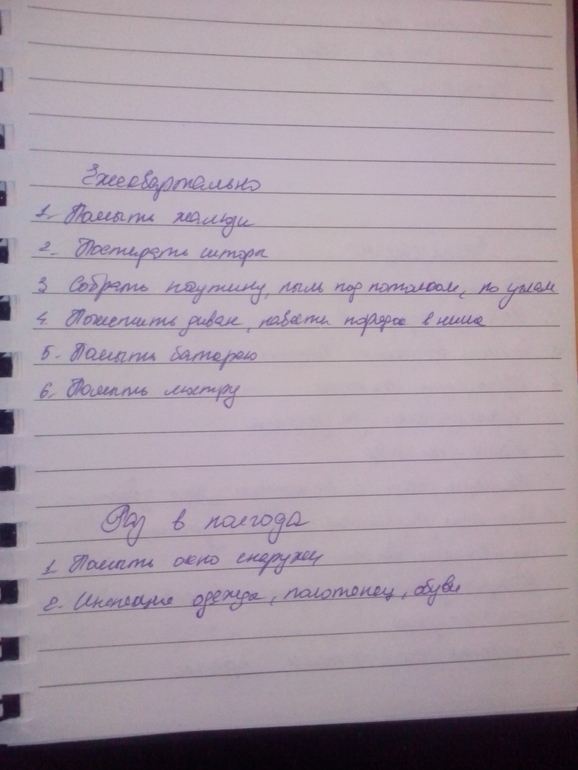 Ежеквартально
1. Помыть жалюзи
2. Постирать шторы
3. Собрать паутину, пыль под потолком, по углам
4. диван, навести порядок в нише
5. Помыть батарею
6. Помыть люстру
Раз в полгода
1. Помыть окно снаружи
2. Инспекция одежды, полотенец, обуви